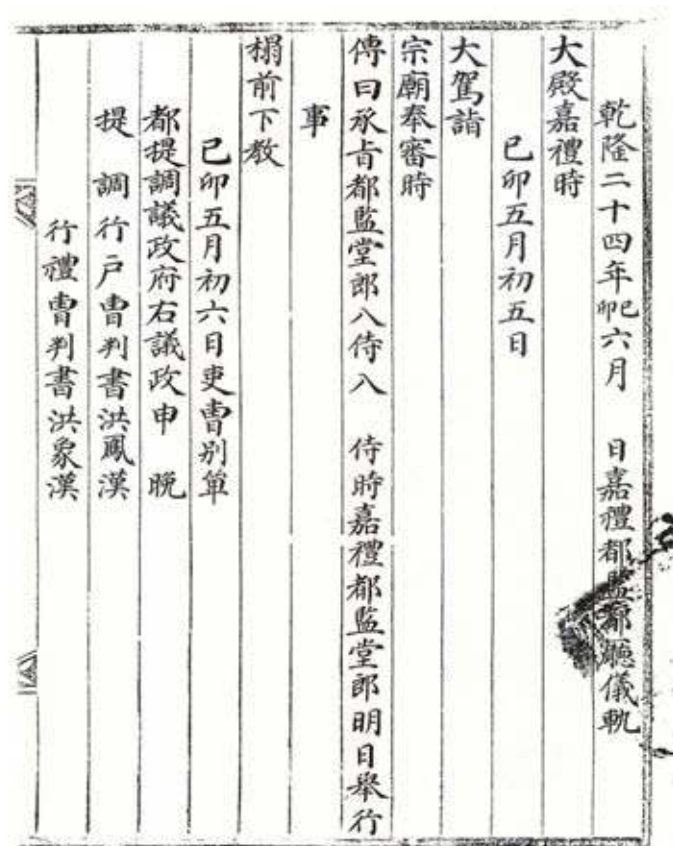 乾隆二十四年己卯六月 日嘉禮都監都廳儀軌
大殿嘉禮時
己卯五月初五日
大駕詣
宗廟奉審時
傳曰承旨都監堂郎入侍入 侍時嘉禮都監堂郎明日舉行
事
榻前下敎
己卯五月初六日吏曹別單
都提調議政府右議政申 晩
提 調行戶曹判書洪鳳漢
行禮曹判書洪象漢